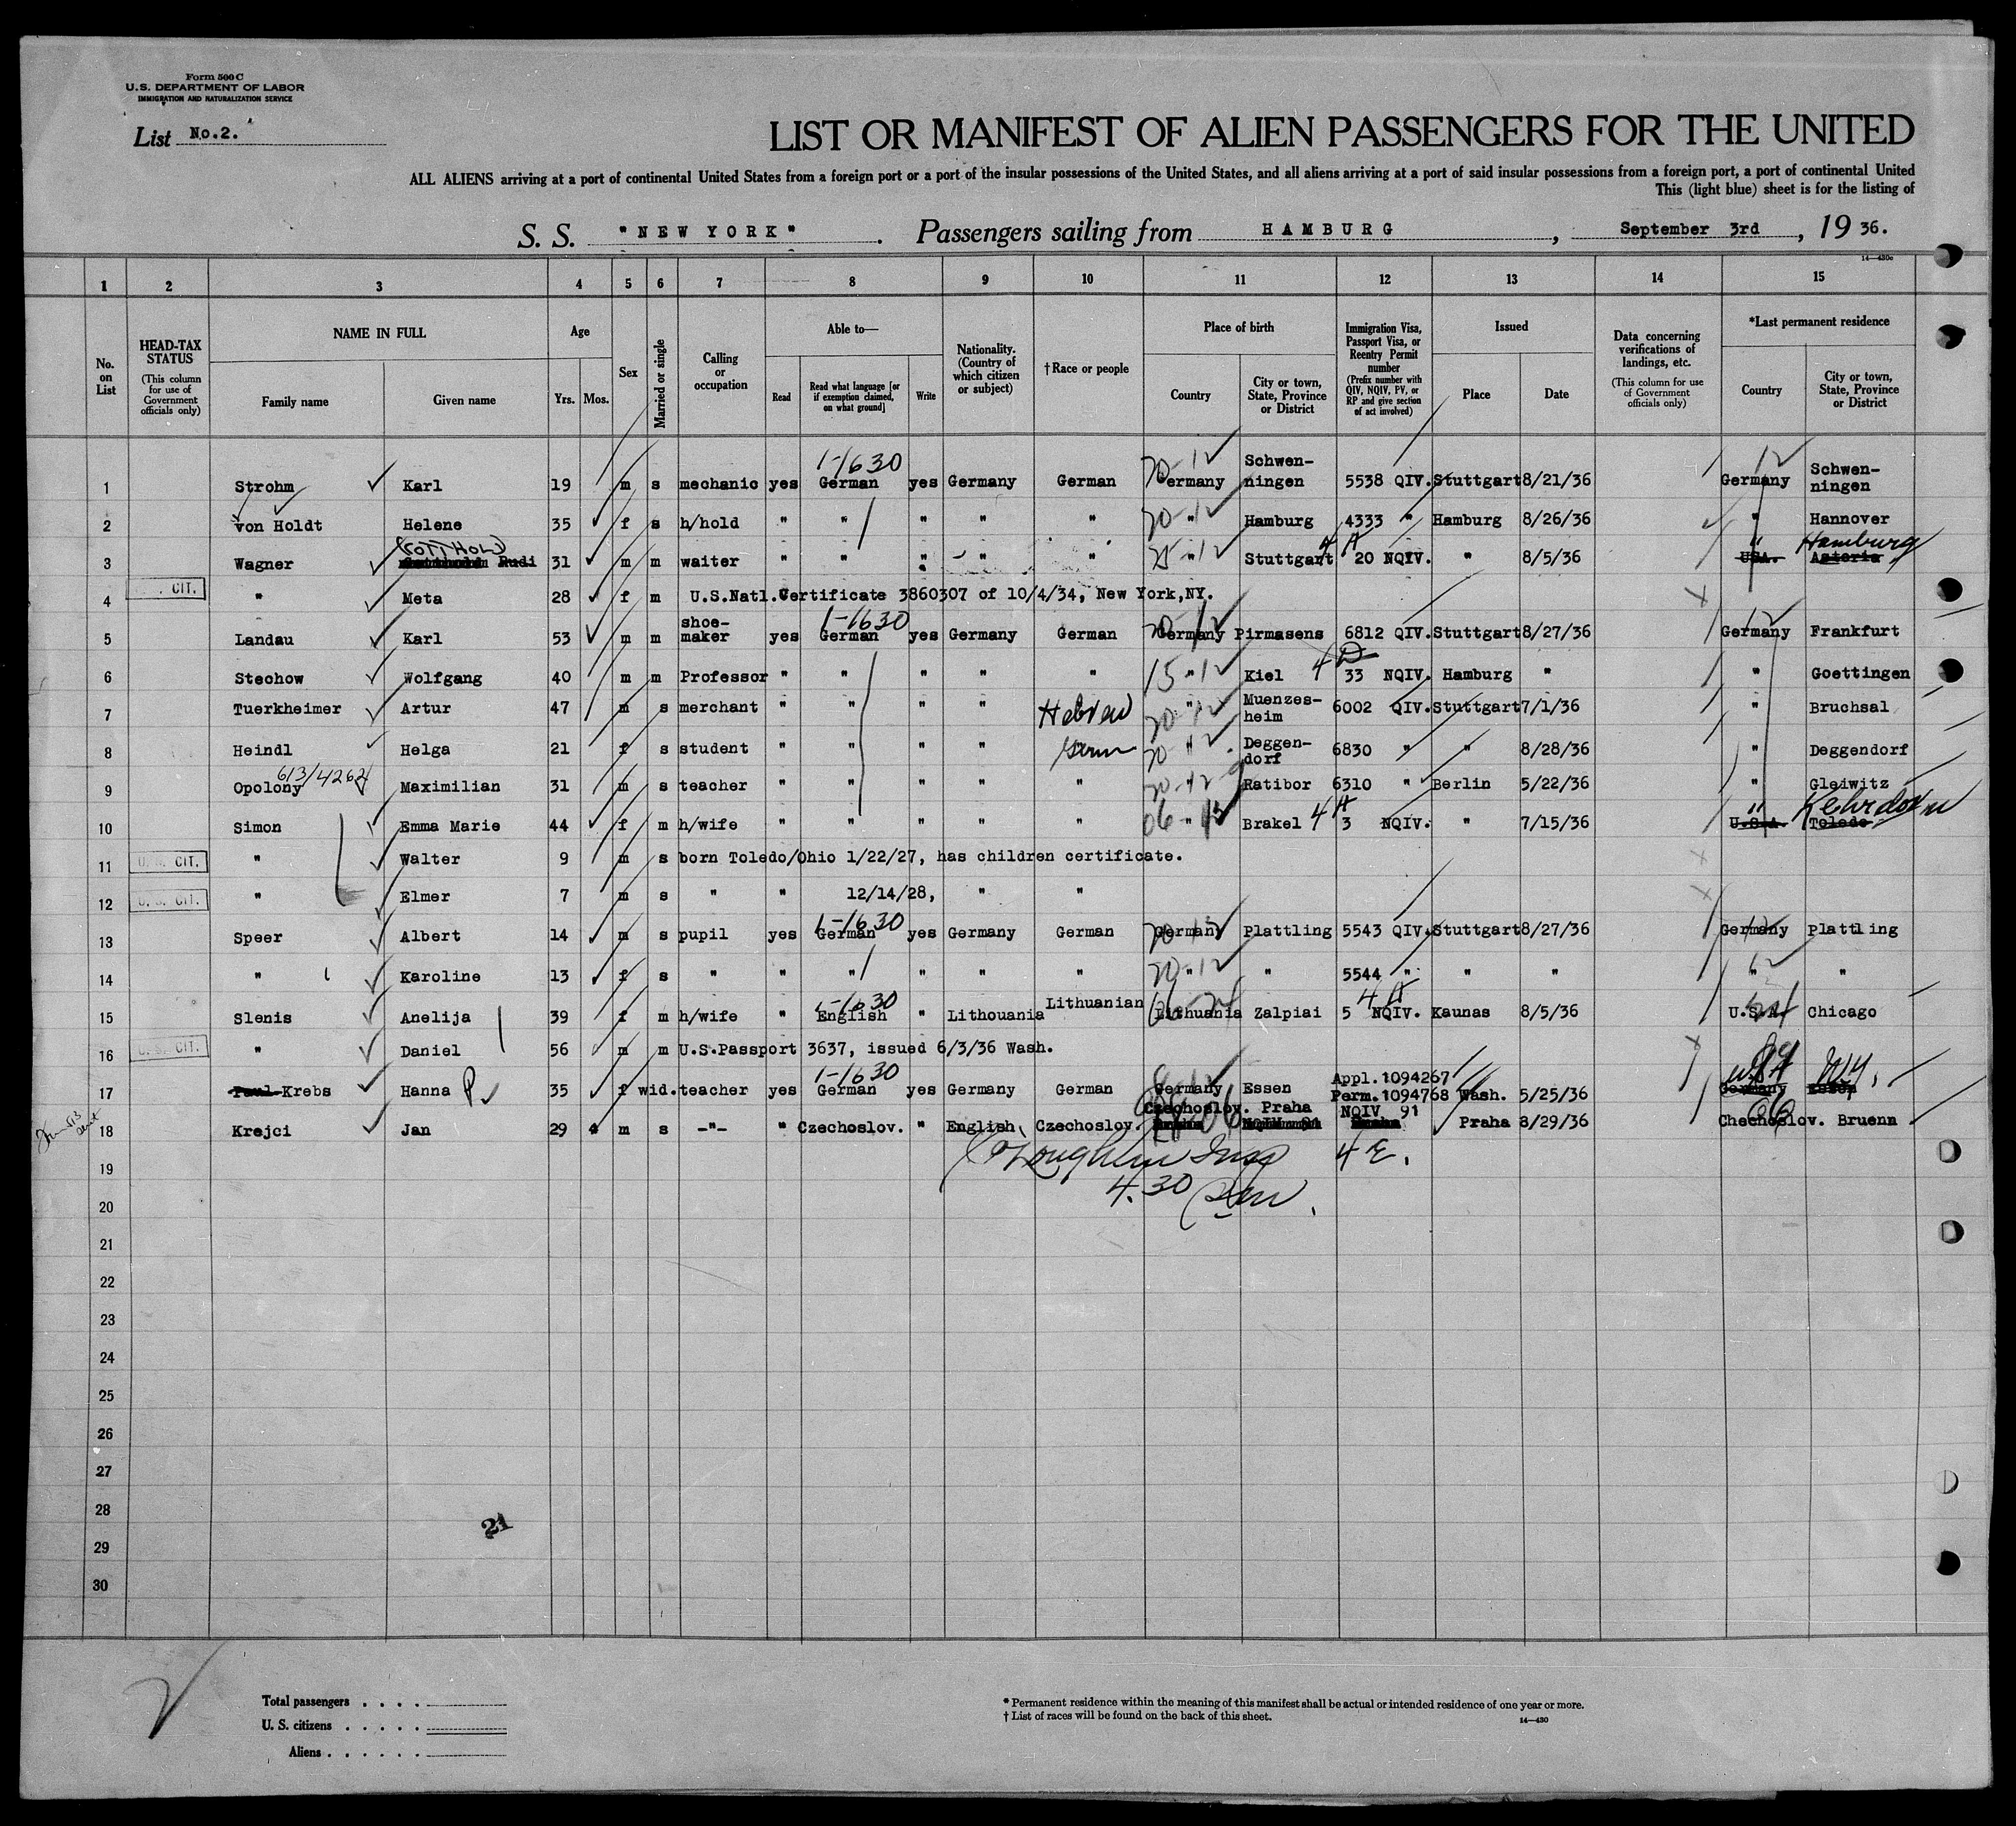 Form 500 C
U.S. DEPARTMENT OF LABOR
IMMIGRATION AND NATURALIZATION SERVICE
List No.2.
LIST OR MANIFEST OF ALIEN PASSENGERS FOR THE UNITED
ALL ALIENS arriving at a port of continental United States from a foreign port or a port of the insular possessions of the United States, and all aliens arriving at a port of said insular possessions from a foreign port, a port of continental United
This (light blue) sheet is for the listing of
S. S. "NEW YORK". Passengers sailing from HAMBURG, September 3rd, 19 36.
14—430c
1 2 3 4 5 6 7 8 9 10 11 12 13 14 15
No. on List
HEAD-TAX STATUS
(This column for use of Government officials only)
NAME IN FULL
Family name
Given name
Age
Yrs. Mos.
Sex
Married or single
Calling or occupation
Able to—
Read
Read what language [or if exemption claimed, on what ground]
Write
Nationality. (Country of which citizen or subject)
†Race or people
Place of birth
Country
City or town, State, Province or District
Immigration Visa, Passport Visa, or Reentry Permit number
(Prefix number with QIV, NQIV, PV, or RP and give section of act involved)
Issued
Place
Date
Data concerning verifications of landings, etc.
(This column for use of Government officials only)
*Last permanent residence
Country
City or town, State, Province or District
1-1630 20-12 Schwen- 12 Schwen-
1 Strohm Karl 19 m s mechanic yes German yes Germany German Germany ningen 5538 QIV. Stuttgart 8/21/36 Germany ningen
2 von Holdt Helene 35 f s h/hold " " " " " 20-12 " Hamburg 4333 " Hamburg 8/26/36 " Hannover
(GOTTHOLD) 4 A " Hamburg
3 Wagner Rudi 31 m m waiter " " " " " 25-12 " Stuttgart 20 NQIV. " 8/5/36 USA. Astoria
CIT.
4 " Meta 28 f m U.S.Natl.Certificate 3860307 of 10/4/34, New York,NY.
shoe- 1-1630 20-12 12
5 Landau Karl 53 m m maker yes German yes Germany German Germany Pirmasens 6812 QIV. Stuttgart 8/27/36 Germany Frankfurt
6 Stechow Wolfgang 40 m m Professor " " " " " 15-12 " Kiel 4 D 33 NQIV. Hamburg " " Goettingen
7 Tuerkheimer Artur 47 m s merchant " " " " Hebrew 20-12 " Muenzes-heim 6002 QIV. Stuttgart 7/1/36 " Bruchsal
8 Heindl Helga 21 f s student " " " " Germ 20-12 " Deggen-dorf 6830 " " 8/28/36 " Deggendorf
613/4262
9 Opolony Maximilian 31 m s teacher " " " " " 20-12 " Ratibor 6310 " Berlin 5/22/36 " Gleiwitz
10 Simon Emma Marie 44 f m h/wife " " " " " 06-12 " Brakel 4 A 3 NQIV. " 7/15/36 " U.S.A. Toledo
U. S. CIT.
11 " Walter 9 m s born Toledo/Ohio 1/22/27, has children certificate.
U. S. CIT.
12 " Elmer 7 m s " " 12/14/28, " "
1-1630
13 Speer Albert 14 m s pupil yes German yes Germany German 20-12 Germany Plattling 5543 QIV. Stuttgart 8/27/36 12 Germany Plattling
14 " Karoline 13 f s " " " " " " 20-12 " " 5544 " " " 12 " "
1-1630 Lithuanian 4 A
15 Slenis Anelija 39 f m h/wife " English " Lithouania Lithuania Zalpiai 5 NQIV. Kaunas 8/5/36 U.S.A. Chicago
U. S. CIT.
16 " Daniel 56 m m U.S.Passport 3637, issued 6/3/36 Wash.
1-1630 Appl.1094267 N.Y.
17 Paul-Krebs Hanna P 35 f wid. teacher yes German yes Germany German Germany Essen Perm.1094768 Wash. 5/25/36 Germany Essen
Czechoslov. Praha NQIV 91 06
18 Krejci Jan 29 m s -"- " Czechoslov. " English Czechoslov. Praha Praha 8/29/36 Chechoslov. Bruenn
19 O'Loughlin Insp 4 E.
20 4.30 pm.
21
22
23
24
25
26
27
28
21
29
30
Total passengers . . . .
U. S. citizens . . . . .
Aliens . . . . . .
* Permanent residence within the meaning of this manifest shall be actual or intended residence of one year or more.
† List of races will be found on the back of this sheet.
14—430